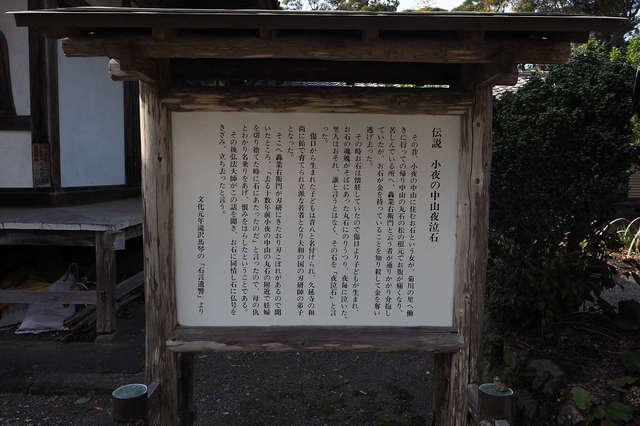 伝説　小夜の中山夜泣石
その昔、小夜の中山に住むお石という女が、菊川の里へ働
きに行っての帰り中山の丸石の松の根元でお腹が痛くなり、
苦しんでいる所へ、轟業右衛門と云う者が通りかかり介抱し
ていたが、お石が金を持っていることを知り殺して金を奪い
逃げ去った。
その時お石は懐妊していたので傷口より子どもが生まれ、
お石の魂魄がそばにあった丸石にのりうつり、夜毎に泣いた。
里人はおそれ、誰と言うとはなく、その石を『夜泣石』と言
った。
傷口から生まれた子どもは音八と名付けられ、久延寺の和
尚に飴で育てられ立派な若者となり大和の国の刃研師の弟子
となった。
そこへ轟業右衛門が刃研にきたおり刃こぼれがあるので聞
いたところ、「去る十数年前小夜の中山の丸石の附近で妊婦
を切り捨てた時に石にあたったのだ」と言ったので、母の仇
とわかり名乗りをあげ、恨みをはらしたということである。
その後弘法大師がこの話を聞き、お石に同情し石に仏号を
きざみ、立ち去ったと言う。
文化元年滝沢馬琴の『石言遺響』より